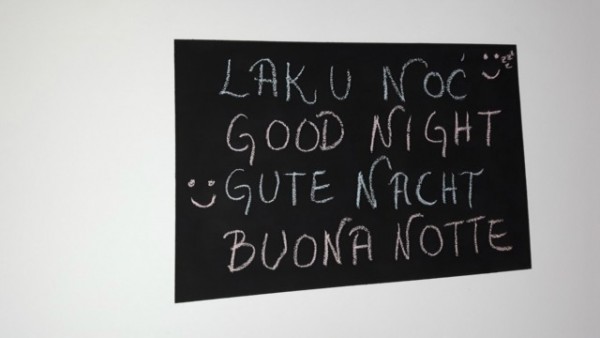 LAKU NOĆ zzz
GOOD NIGHT
GUTE NACHT
BUONA NOTTE